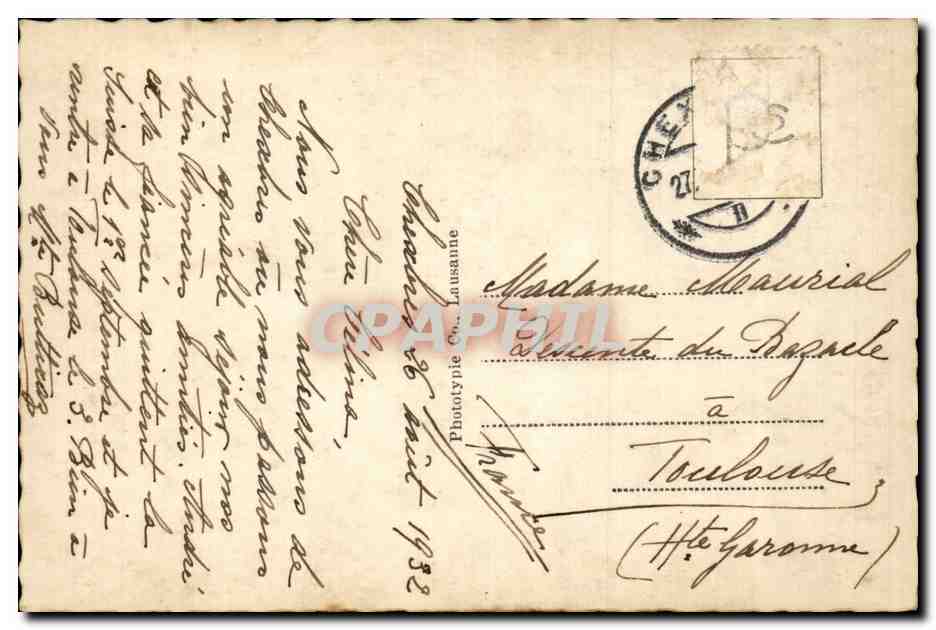 Chexbres 26 août 1932
Chère Céline,
Nous vous adressons de
Chexbres où nous passons
un agréable séjour nos
bien sincères amitiés. André
et sa fiancée quittent la
Suisse le 1er Septembre et je
rentre à le 3. Bien à
vous Mte
Phototypie Co., Lausanne
CHEX
27.
Madame Maurial
Descente du Bazacle
à
Toulouse
(Hte Garonne)
France
CPAPHIL